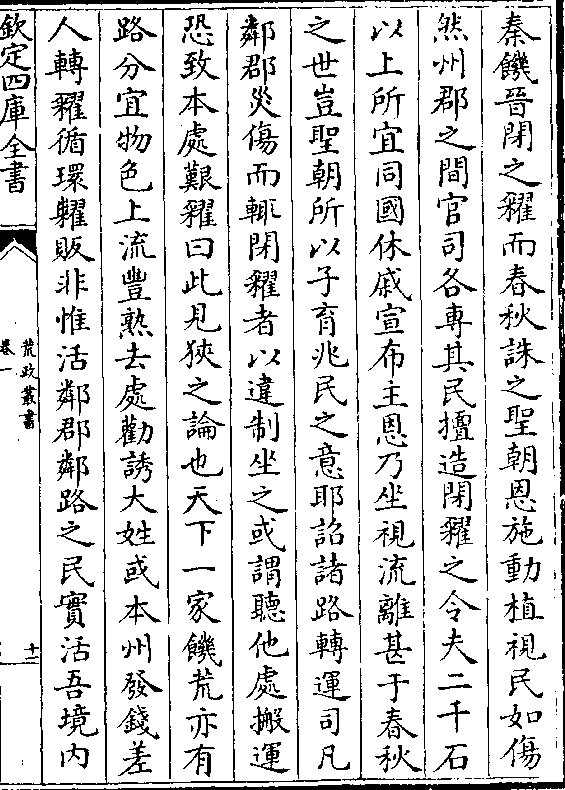 秦饑晉閉之糴而春秋誅之聖朝恩施動植視民如傷
然州郡之間官司各專其民擅造閉糴之令夫二千石
以上所宜同國休戚宣布主恩乃坐視流離甚于春秋
之世豈聖朝所以子育兆民之意耶詔諸路轉運司凡
鄰郡災傷而輒閉糴者以違制坐之或謂聽他處搬運
恐致本處艱糴曰此見狹之論也天下一家饑荒亦有
路分宜物色上流豐熟去處勸誘大姓或本州發錢差
人轉糴循環糶販非惟活鄰郡鄰路之民實活吾境內
欽定四庫全書
荒政叢書
卷一
十一